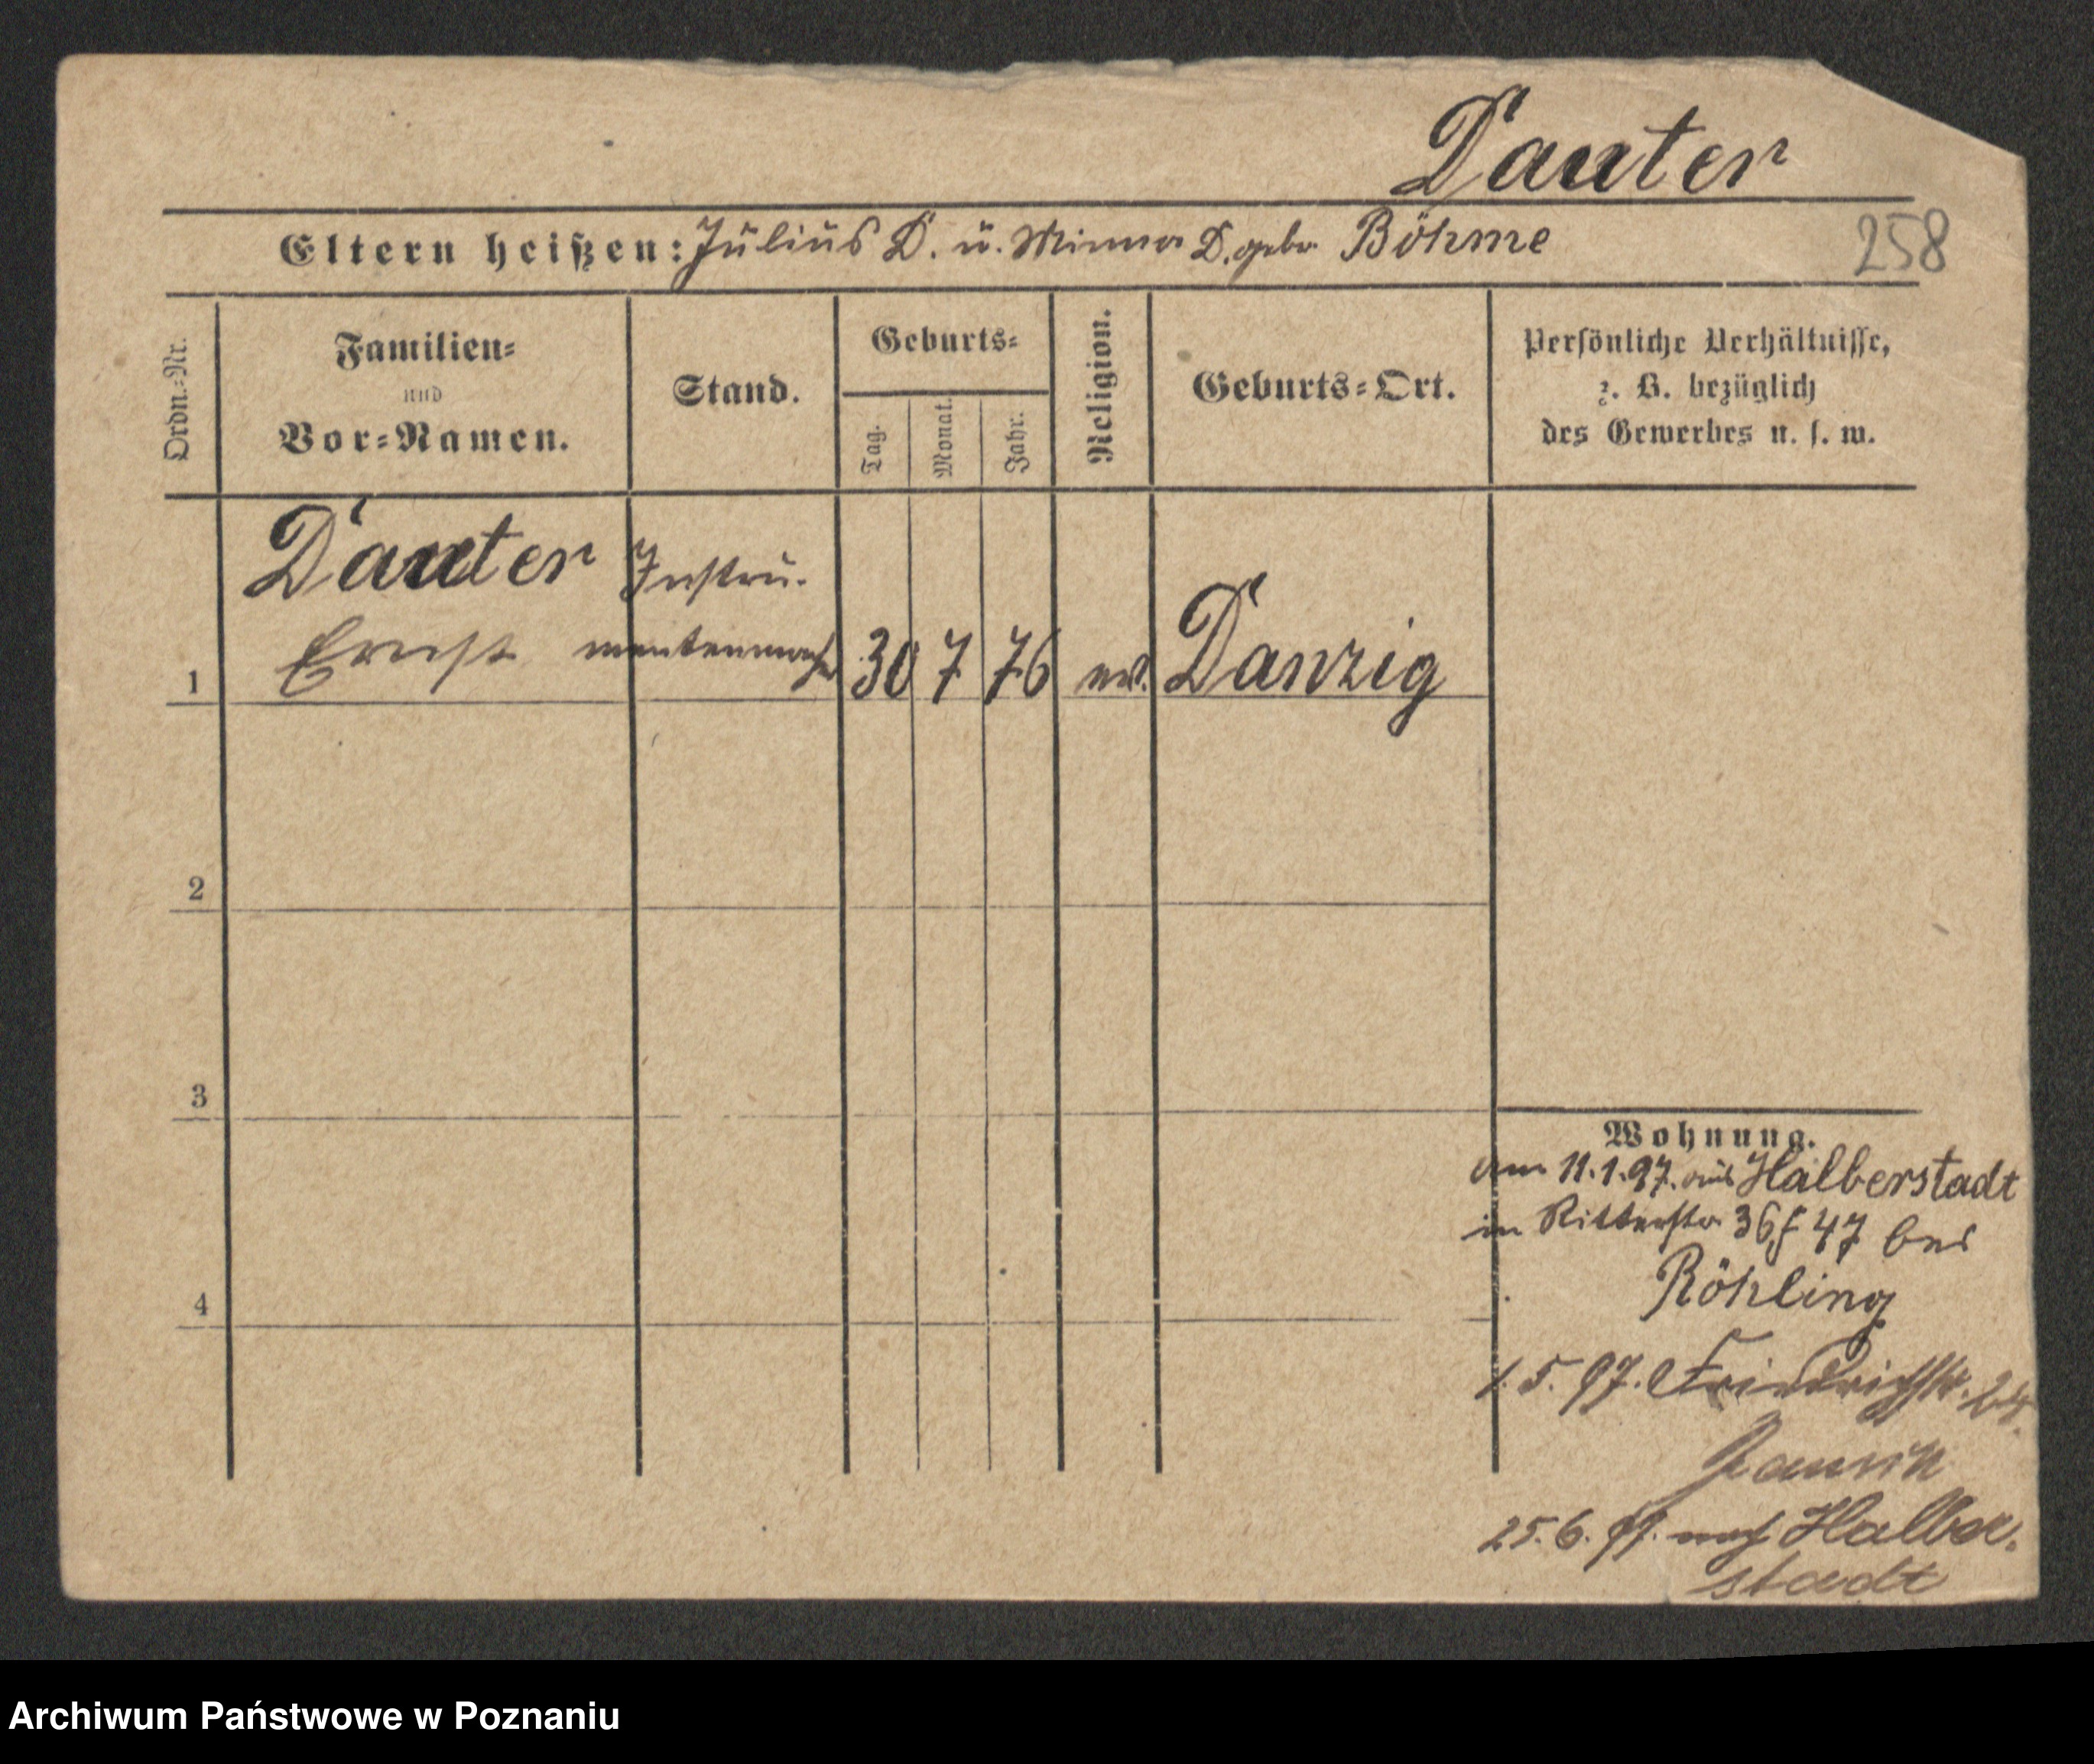 Dauter
Eltern heißen: Julius D. u. Minna D. geb. Böhme
258
Ordn.-Nr.
Familien-
und
Vor-Namen.
Stand.
Geburts-
Tag.
Monat.
Jahr.
Religion.
Geburts-Ort.
Persönliche Verhältnisse,
z. B. bezüglich
des Gewerbes u. s. w.
Dauter Instru-
1 Ernst mentenmacher 30 7 76 Danzig
2
3
4
Wohnung.
am 11.1.97. aus Halberstadt
in Ritterstr. 36 47 bei
Röhling
1.5.97. Friedrichstr. 24.
25.6. nach Halber-
stadt
Archiwum Państwowe w Poznaniu